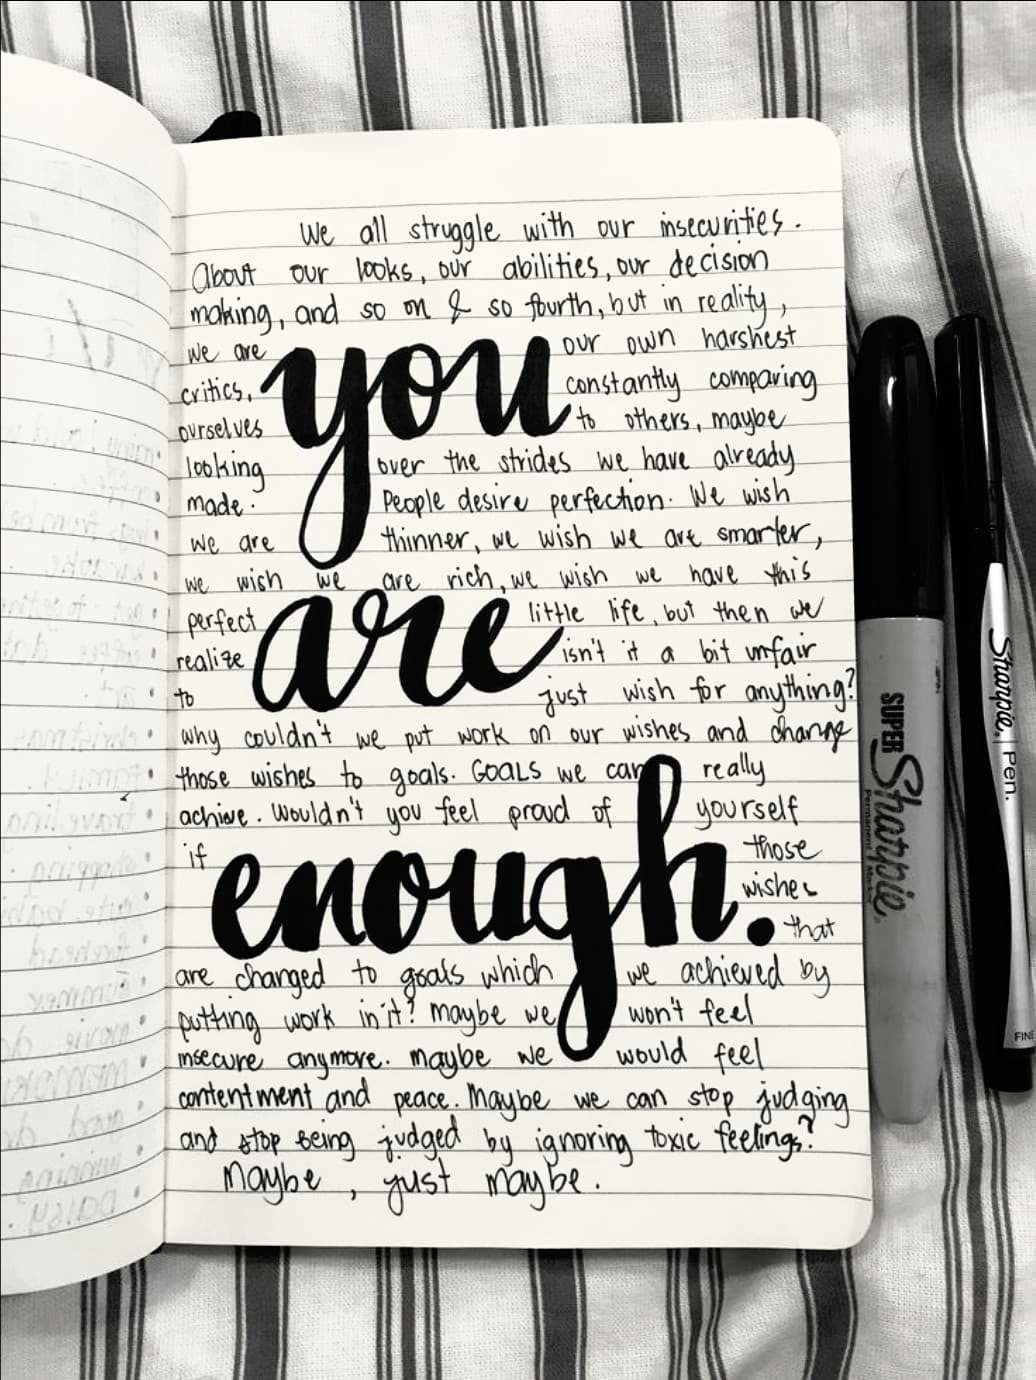 We all struggle with our insecurities.
About our looks, our abilities, our decision
making, and so on & so fourth, but in reality,
we are our own harshest
critics, constantly comparing
ourselves to others, maybe
looking over the strides we have already
made. People desire perfection. We wish
we are thinner, we wish we are smarter,
we wish we are rich, we wish we have this
perfect little life, but then we
realize isn't it a bit unfair
to just wish for anything?
why couldn't we put work on our wishes and change
those wishes to goals. GOALS we can really
achive. Wouldn't you feel proud of yourself
if those
wishes
that
are changed to goals which we achieved by
putting work in it? maybe we won't feel
insecure anymore. maybe we would feel
contentment and peace. Maybe we can stop judging
and stop being judged by ignoring toxic feelings?
Maybe, just maybe.
you
are
enough.
SUPER
Sharpie.
Permanent Marker
Sharpie. | Pen.
FINE